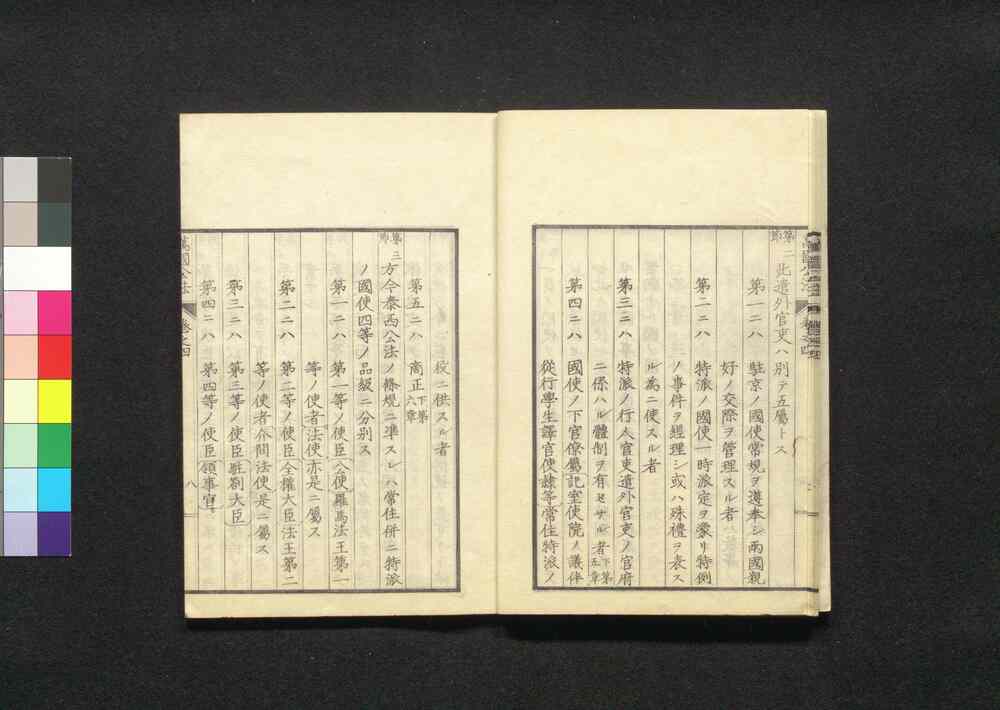 第二節
此遣外官吏ハ別テ五屬トス
第一ニハ　駐京ノ國使常規ヲ遵奉シ兩國親
好ノ交際ヲ管理スル者
第二ニハ　特派ノ國使一時派定ヲ蒙リ特例
ノ事件ヲ經理シ或ハ殊禮ヲ表ス
ル為ニ使スル者
第三ニハ　特派ノ行人官吏遣外官吏ノ官府
ニ係ハル體制ヲ有セサル者下第五章
第四ニハ　國使ノ下官僚屬記室使院ノ議伴
從行學生譯官使隷等常住特派ノ
役ニ供スル者
第五ニハ　商正下第六章
第三節
方今泰西公法ノ條規ニ準スレハ常住併ニ特派
ノ國使四等ノ品級ニ分別ス
第一ニハ　第一等ノ使臣公使羅馬法王第一
等ノ使者法使亦是ニ屬ス
第二ニハ　第二等ノ使臣全權大臣法王第二
等ノ使者介間法使是ニ屬ス
第三ニハ　第三等ノ使臣駐劄大臣
第四ニハ　第四等ノ使臣領事官
萬國公法　卷之四　八